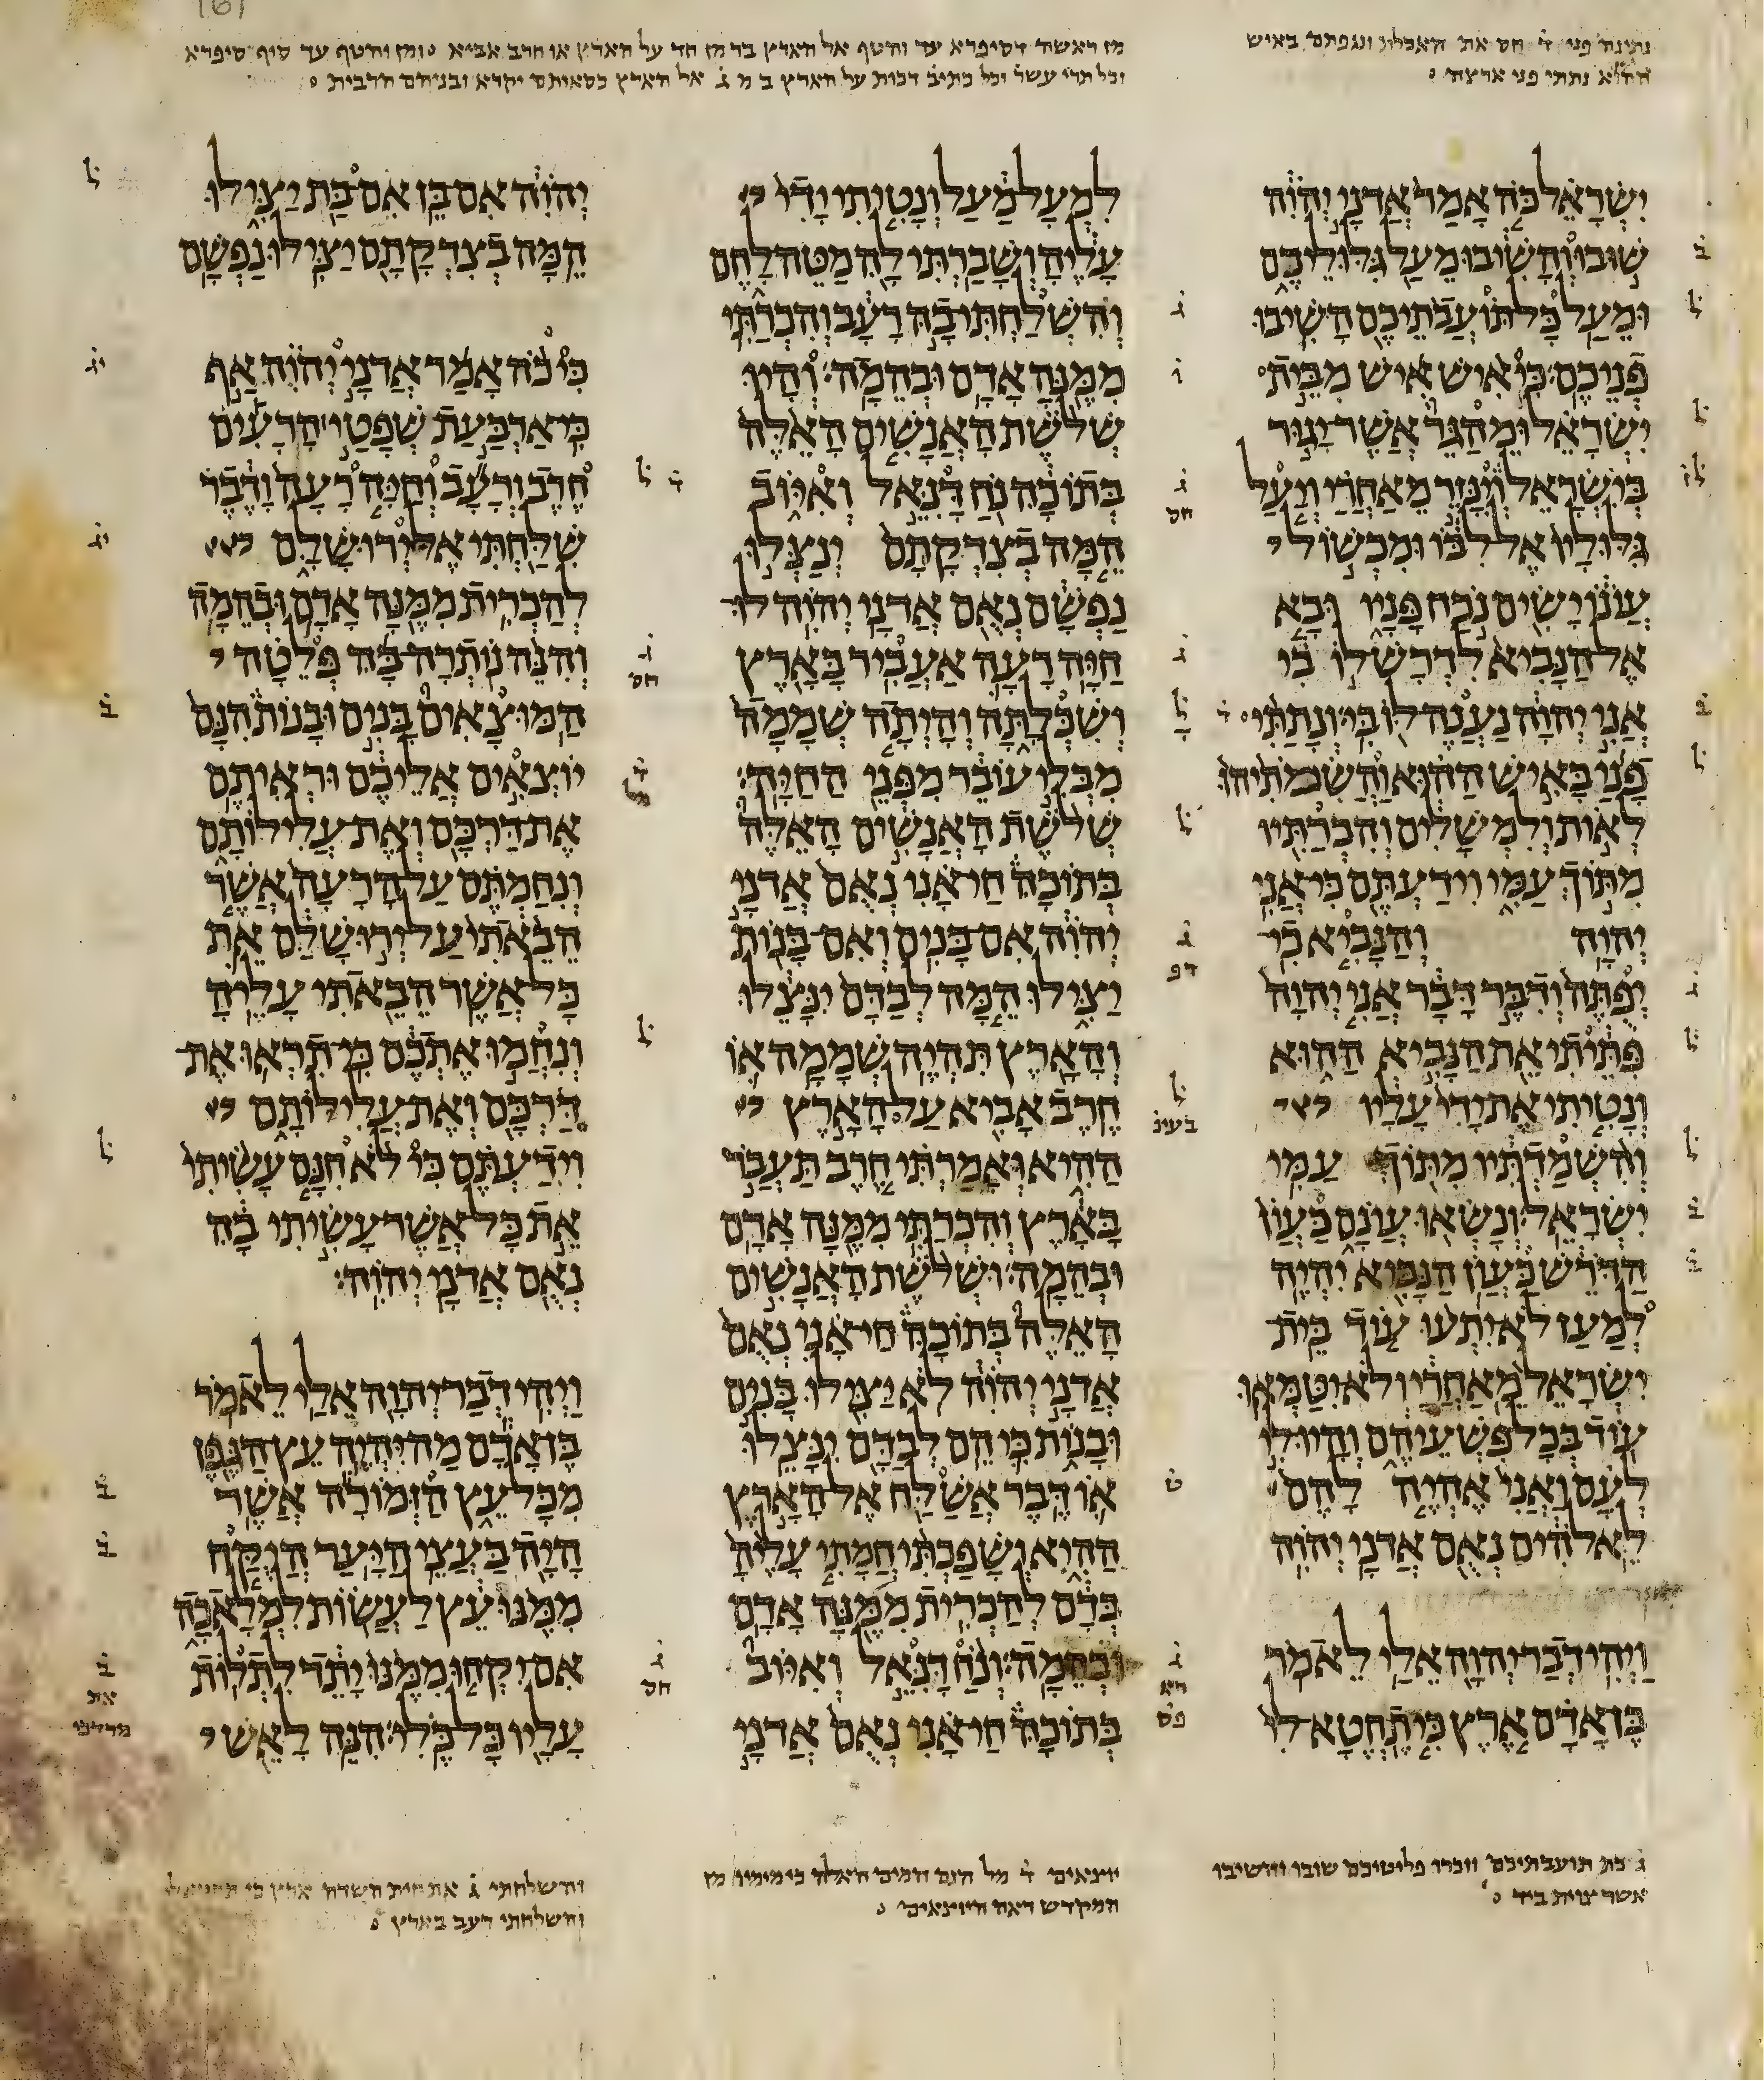 נתינת פני ד חס את האכלת ונגפתם באיש
ההוא נתתי פני ארצה
מן ראשה דסיפרא עד והטף אל הארץ בר מן חד על הארץ או חרב אביא ומן והטף עד סוף סיפרא
וכל תרי עשר וכל כתיב דכות על הארץ ב מ ג אל הארץ כסאותם יקרא ובניהם הרבית
ישראל כה אמר אדני יהוה
שובו והשיבו מעל גלוליכם
ומעל כל תועבתיכם השיבו
פניכם׃ כי איש איש מבית
ישראל ומהגר אשר יגור
בישראל וינזר מאחרי ויעל
גלוליו אל לבו ומכשול
עונו ישים נכח פניו ובא
אל הנביא לדרש לו בי
אני יהוה נענה לו בי׃ ונתתי
פני באיש ההוא והשמתיהו
לאות ולמשלים והכרתיו
מתוך עמי וידעתם כי אני
יהוה והנביא כי
יפתה ודבר דבר אני יהוה
פתיתי את הנביא ההוא
ונטיתי את ידי עליו
והשמדתיו מתוך עמי
ישראל׃ ונשאו עונם כעון
הדרש כעון הנביא יהיה׃
למען לא יתעו עוד בית
ישראל מאחרי ולא יטמאו
עוד בכל פשעיהם והיו לי
לעם ואני אהיה להם
לאלהים נאם אדני יהוה׃
ויהי דבר יהוה אלי לאמר׃
בן אדם ארץ כי תחטא לי
למעל מעל ונטיתי ידי
עליה ושברתי לה מטה לחם
והשלחתי בה רעב והכרתי
ממנה אדם ובהמה׃ והיו
שלשת האנשים האלה
בתוכה נח דנאל ואיוב
המה בצדקתם ינצלו
נפשם נאם אדני יהוה׃ לו
חיה רעה אעביר בארץ
ושכלתה והיתה שממה
מבלי עובר מפני החיה׃
שלשת האנשים האלה
בתוכה חי אני נאם אדני
יהוה אם בנים ואם בנות
יצילו המה לבדם ינצלו
והארץ תהיה שממה׃ או
חרב אביא על הארץ
ההיא ואמרתי חרב תעבר
בארץ והכרתי ממנה אדם
ובהמה׃ ושלשת האנשים
האלה בתוכה חי אני נאם
אדני יהוה לא יצילו בנים
ובנות כי הם לבדם ינצלו׃
או דבר אשלח אל הארץ
ההיא ושפכתי חמתי עליה
בדם להכרית ממנה אדם
ובהמה׃ ונח דנאל ואיוב
בתוכה חי אני נאם אדני
יהוה אם בן אם בת יצילו
המה בצדקתם יצילו נפשם׃
כי כה אמר אדני יהוה אף
כי ארבעת שפטי הרעים
חרב ורעב וחיה רעה ודבר
שלחתי אל ירושלם
להכרית ממנה אדם ובהמה׃
והנה נותרה בה פלטה
המוצאים בנים ובנות הנם
יוצאים אליכם וראיתם
את דרכם ואת עלילותם
ונחמתם על הרעה אשר
הבאתי על ירושלם את
כל אשר הבאתי עליה׃
ונחמו אתכם כי תראו את
דרכם ואת עלילותם
וידעתם כי לא חנם עשיתי
את כל אשר עשיתי בה
נאם אדני יהוה׃
ויהי דבר יהוה אלי לאמר׃
בן אדם מה יהיה עץ הגפן
מכל עץ הזמורה אשר
היה בעצי היער׃ היקח
ממנו עץ לעשות למלאכה
אם יקחו ממנו יתד לתלות
עליו כל כלי׃ הנה לאש
ג כת תועבתיכם וזכרו פליטיכם שובו והשיבו
אשר צוית ביד
יוצאים ד מל הנם המים האלה כי מימיו מן
המקדש ראה היוצאים
והשלחתי ג את חית השדה ארץ כי
והשלחתי רעב בארץ